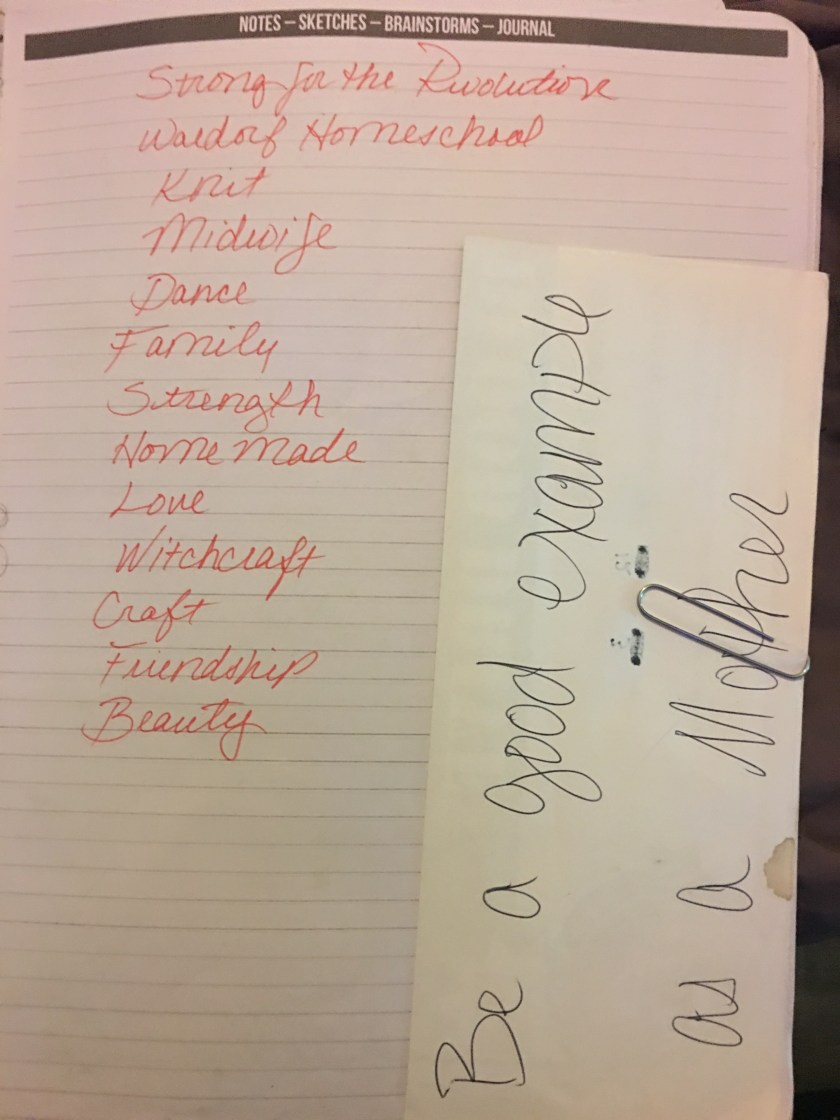 NOTES – SKETCHES – BRAINSTORMS – JOURNAL
Strong for the Revolution
Waldorf Homeschool
Knit
Midwife
Dance
Family
Strength
Home made
Love
Witchcraft
Craft
Friendship
Beauty
Be a good example
as a Mother